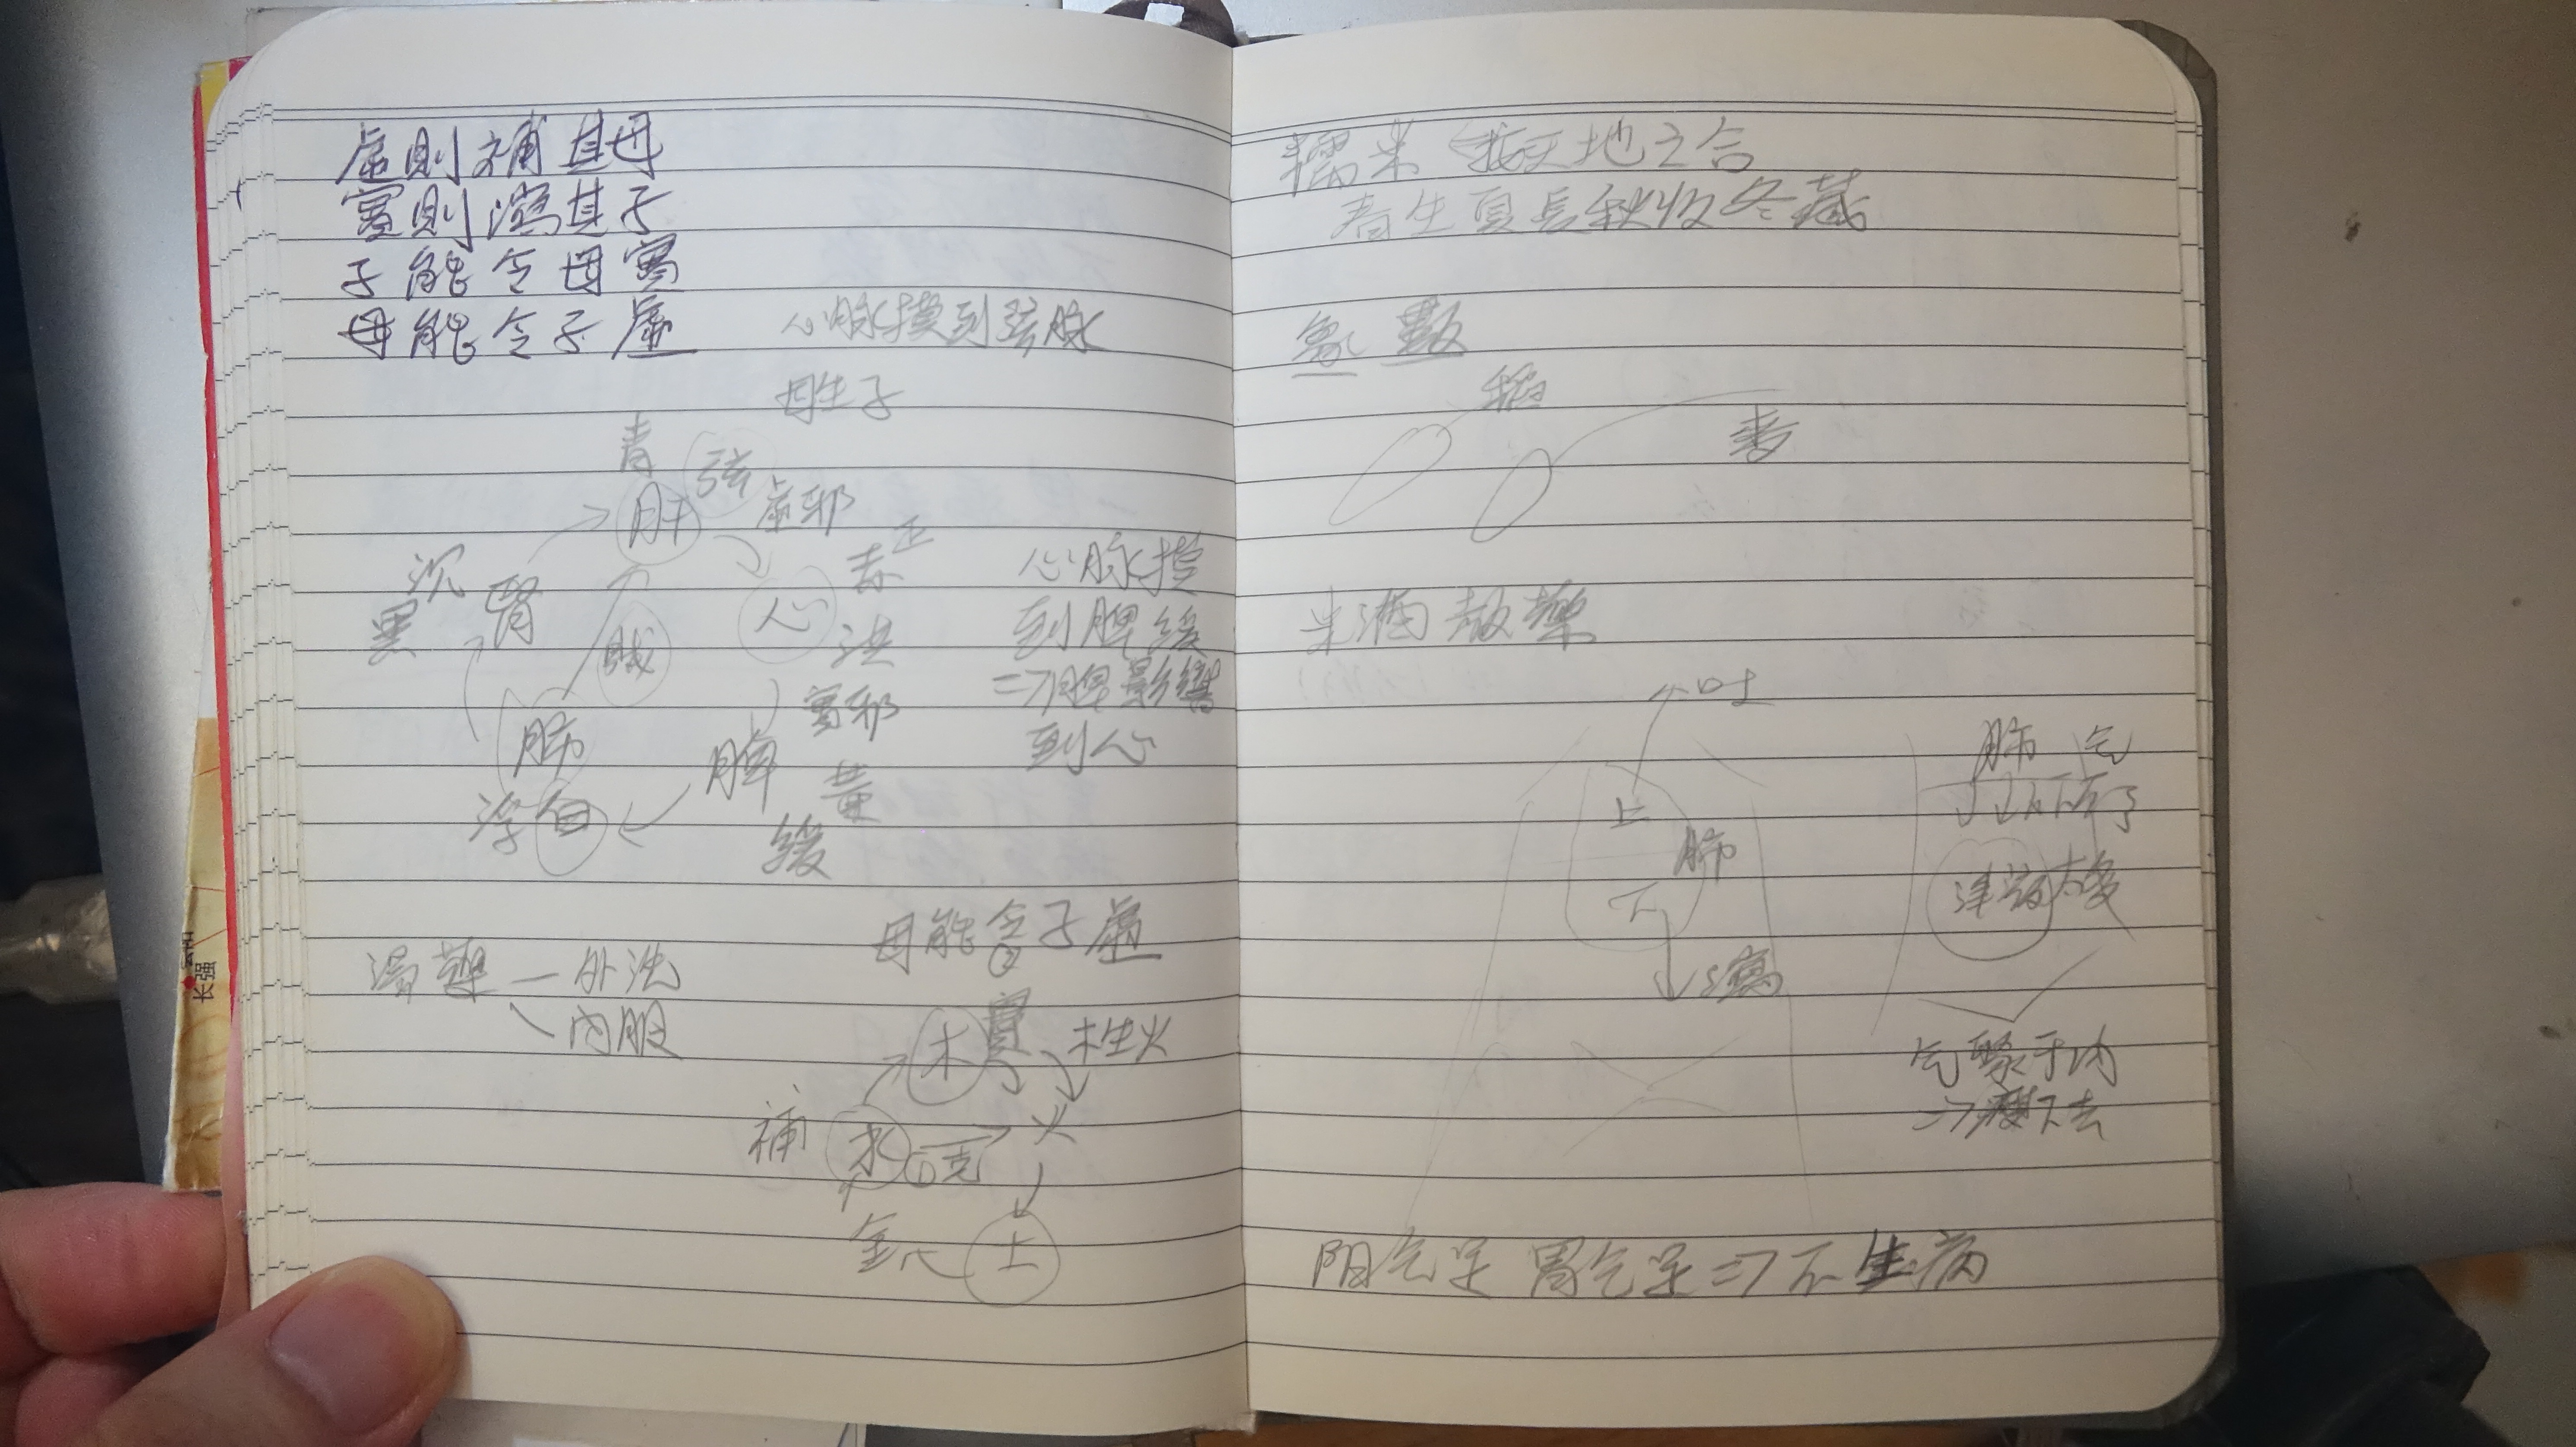 虛則補其母
實則瀉其子
子能令母實
母能令子虛
心脉摸到弦脉
母生子
青
弦
肝
虛邪
正
赤
心
洪
沉
黑
腎
賊
實邪
肺
浮 白
脾
黃
緩
心脉摸
到脾緩
=>脾影響
到心
母能令子虛
外洗
內服
木
實
木生火
補
水
①克
火
金
土
糯米 接天地之合
春生夏長秋收冬藏
象 數
稻
麥
米酒
吐
上
肺
下
瀉
肺 气
下不了
津液太多
气聚于内
=>瘦下去
阴气足 胃气足=>不生病
长强